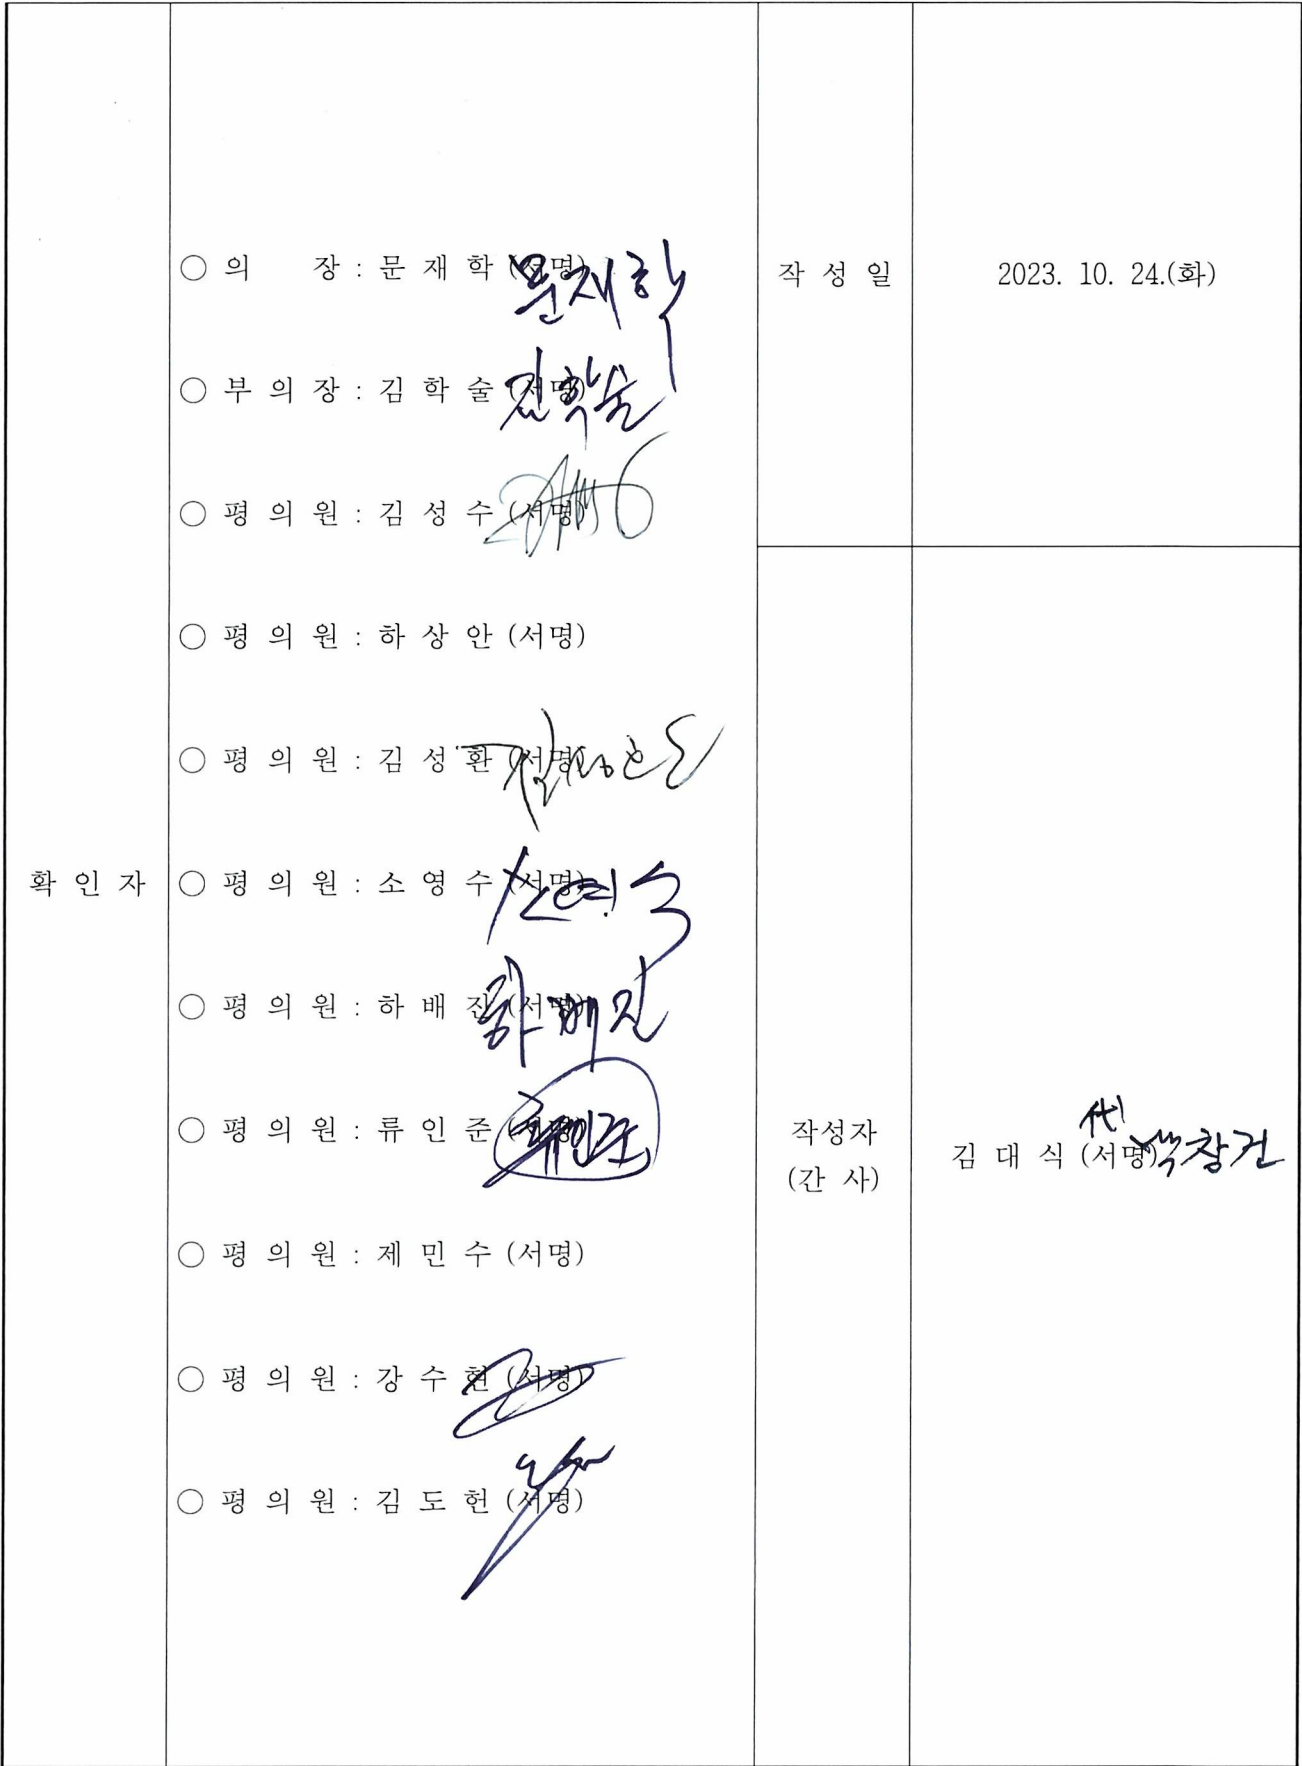 확 인 자
○ 의 장 : 문 재 학 (서명) 문재학
○ 부 의 장 : 김 학 술 (서명) 김학술
○ 평 의 원 : 김 성 수 (서명)
○ 평 의 원 : 하 상 안 (서명)
○ 평 의 원 : 김 성 환 (서명)
○ 평 의 원 : 소 영 수 (서명) 소영수
○ 평 의 원 : 하 배 진 (서명) 하배진
○ 평 의 원 : 류 인 준 (서명) 류인준
○ 평 의 원 : 제 민 수 (서명)
○ 평 의 원 : 강 수 현 (서명)
○ 평 의 원 : 김 도 헌 (서명)
작 성 일
2023. 10. 24.(화)
작성자
(간 사)
김 대 식 (서명) 代 창건